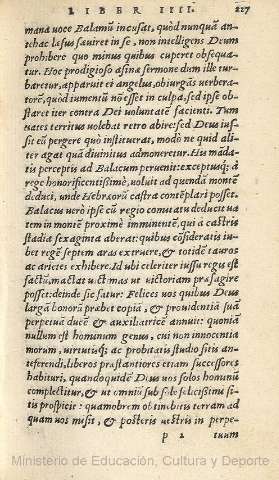 LIBER IIII. 227
mana uoce Balamũ incusat, quòd nunquã an-
tehac læsus sæuiret in se, non intelligens Deum
prohibere quo minus quibus cuperet obsequa-
tur. Hoc prodigioso asinæ sermone dum ille tur-
baretur, apparuit ei angelus, obiurgãs verbera-
torẽ, quòd iumentũ nõ esset in culpa, sed ipse ob-
staret iter contra Dei voluntatẽ facienti. Tum
uates territus volebat retro abire: sed Deus ius-
sit eũ pergere quò instituerat, modò ne quid ali-
ter agat quã diuinitus admoneretur. His mãda-
tis perceptis ad Balacum peruenit: exceptusq; à
rege honorificentissimè, voluit ad quendã montẽ
deduci, unde Hebræorũ castra contẽplari posset.
Balacus verò ipse cũ regio comitatu deducit ua
tem in montẽ proximè imminentẽ, qui à castris
stadia sexaginta aberat: quibus cõsideratis iu-
bet regẽ septem aras extruere, & totidẽ tauros
ac arietes exhibere. Id ubi celeriter iussu regis est
factũ, mactat uictimas ut victoriam præsagire
posset: deinde sic fatur: Felices vos quibus Deus
largã bonorũ præbet copiã, & prouidentiã suã
perpetuã ducẽ & auxiliatricẽ annuit: quoniã
nullum est hominum genus, cui non innocentia
morum, uirtutisq; ac probitatis studio sitis an-
teferendi, liberos præstantiores etiam successores
habituri, quandoquidẽ Deus vos solos hominũ
complectitur, & ut omniũ sub sole felicissimi si-
tis prospicit: quamobrem obtinebitis terram ad
quam vos misit, & posteris uestris in perpe-
p 2 tuum
Ministerio de Educación, Cultura y Deporte